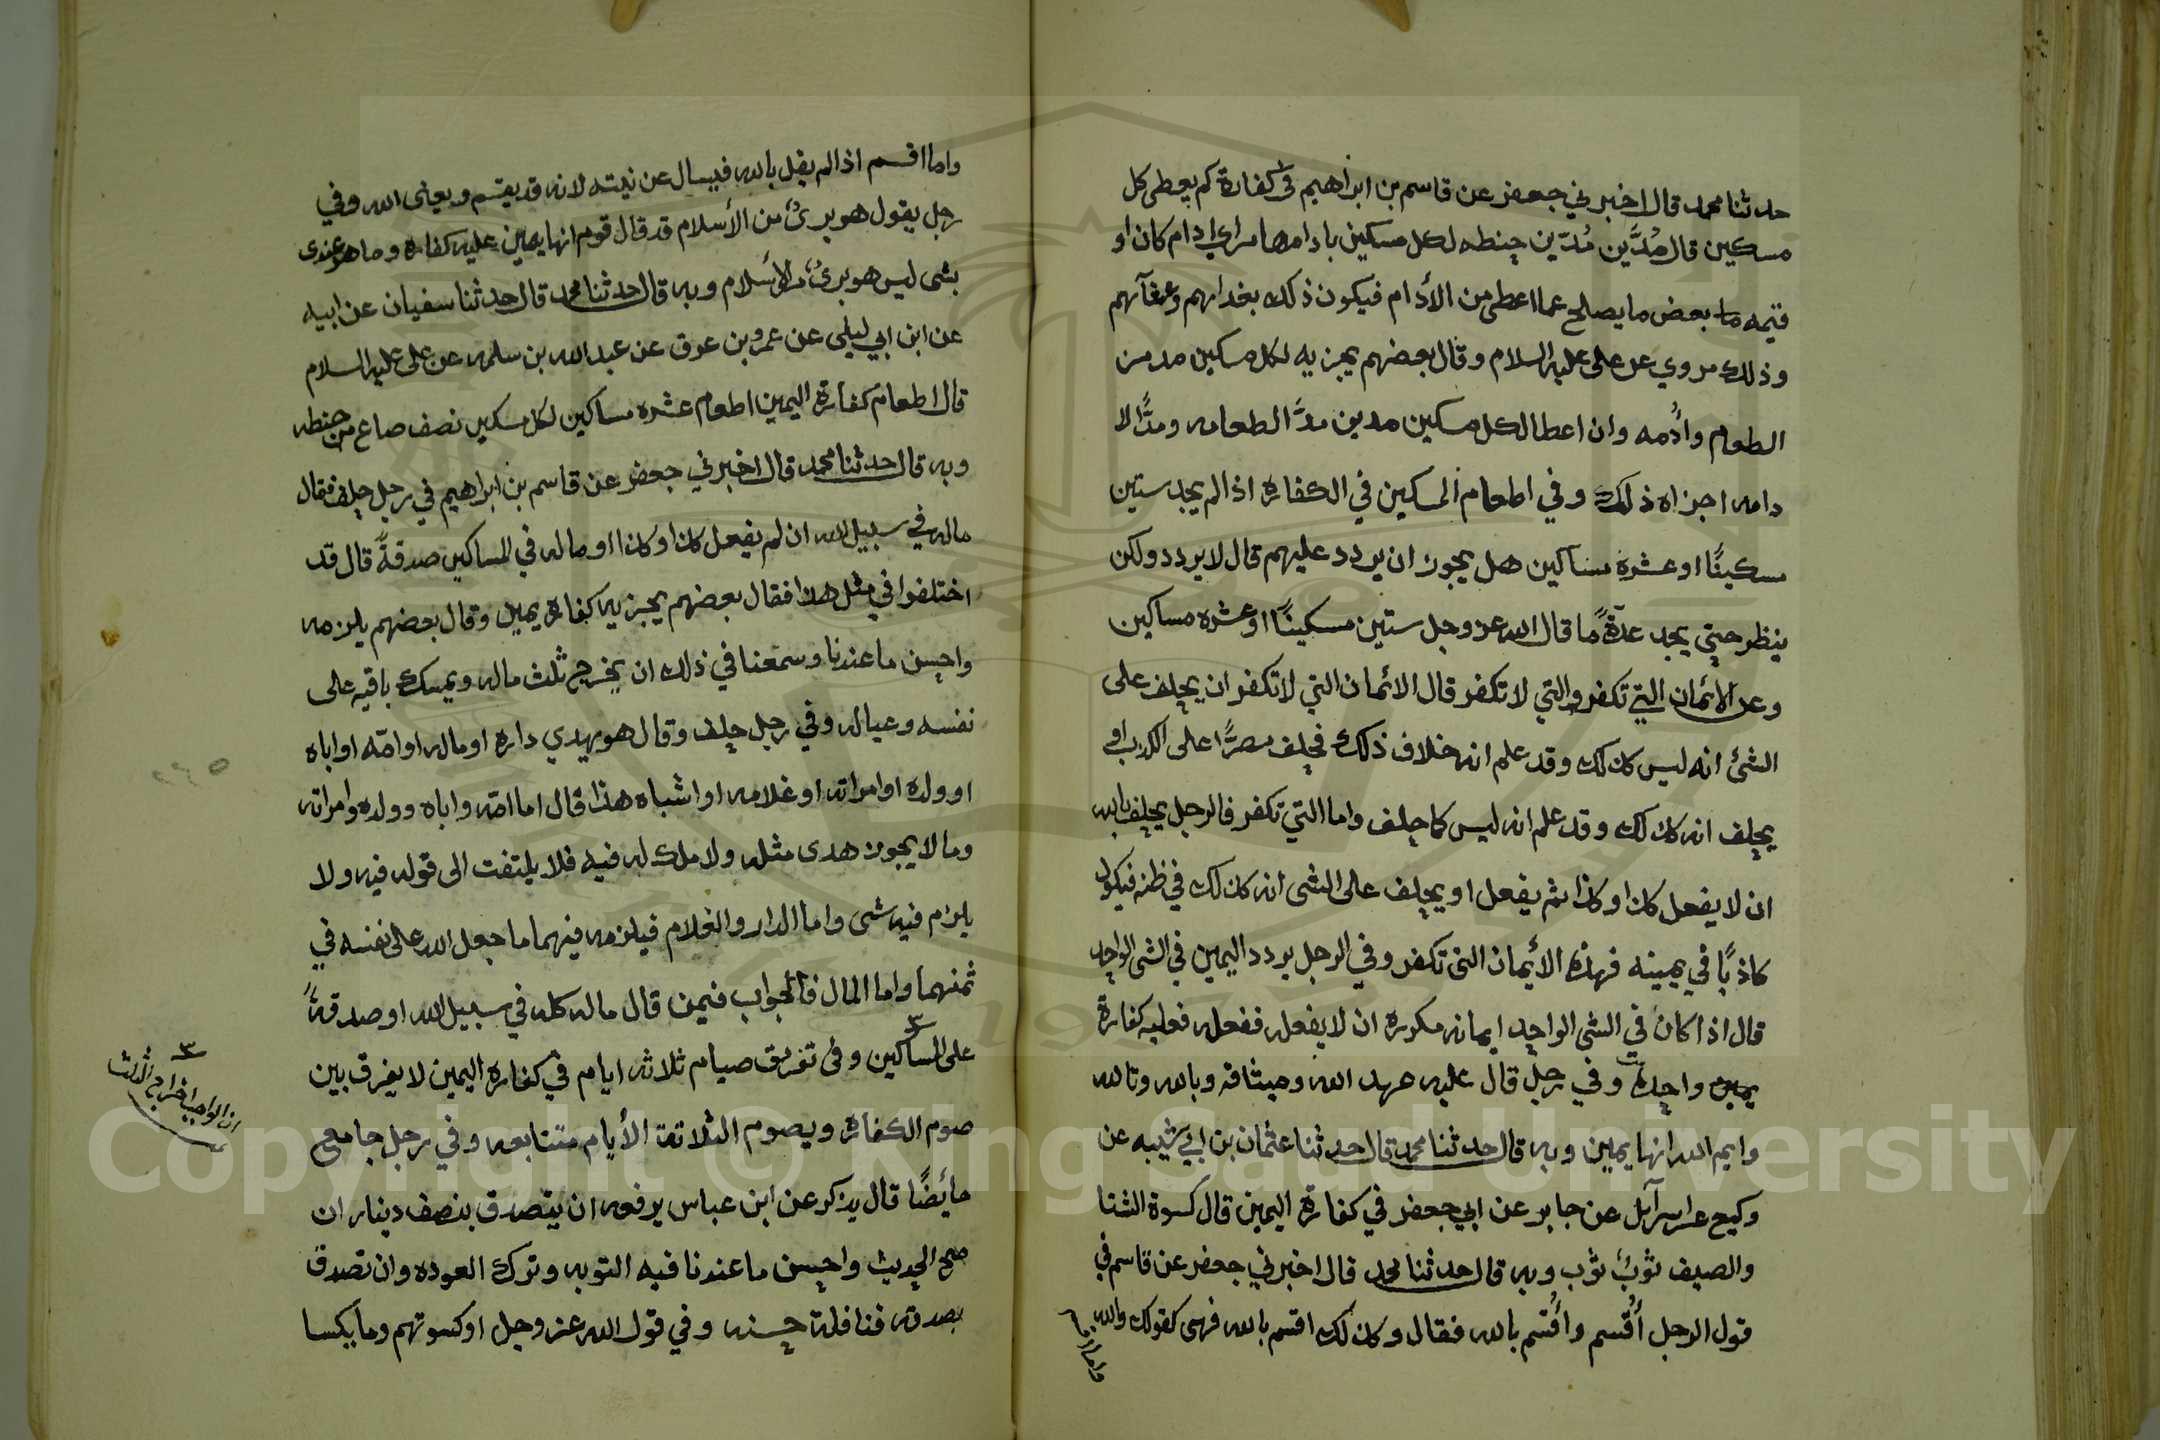 حدثنا محمد قال اخبرني جعفر عن قاسم بن ابراهيم في كفارة كم يعطى كل
مسكين قال مُدَّين مُدّين حنطه لكل مسكين بادامها من اي ادام كان او
قيمه ما بعض ما يصلح عما اعطى من الأدام فيكون ذلك بغدائهم وعشآئهم
وذلك مروي عن على عليه السلام وقال بعضهم يجزيه لكل مسكين مد من
الطعام وأدُمه وان اعطا لكل مسكين مدين مدًّا لطعامه ومدًّا لا
دامه اجزاه ذلك وفي اطعام المسكين في الكفاره اذا لم يجد ستين
مسكينًا او عشرة مساكين هل يجوز ان يردد عليهم قال لا يردد ولكن
ينظر حتي يجد عدّةً ما قال الله عز وجل ستين مسكينًا او عشره مساكين
وعن الائمان التي تكفر والتي لا تكفر قال الائمان التي لا تكفر ان يحلف على
الشئ انه ليس كذلك وقد علم انه خلاف ذلك فحلف مصرًّا على الكذب او
يحلف انه كذلك وقد علم انه ليس كما حلف واما التي تكفر فالرجل يحلف بالله
ان لا يفعل كذا وكذا ثم يفعل او يحلف على الشى انه كذلك في ظنه فيكون
كاذبًا في يمينه فهذه الأيمان التى تكفر وفي الرجل يردد اليمين في الشى الواحد
قال اذا كان في الشى الواحد ايمانه مكرره ان لا يفعله ففعله فعليه كفارة
يمين واحدة وفي رجل قال عليه عهد الله وميثاقه وبالله وتالله
وايم الله انها يمين وبه قال حدثنا محمد قال حدثنا عثمان بن ابي شيبه عن
وكيع عن اسرآئل عن جابر عن ابي جعفر في كفارة اليمين قال كسوة الشتا
والصيف ثوبٌ ثوب وبه قال حدثنا محمد قال اخبرني جعفر عن قاسم في
قول الرجل أُقسم وأُقسم بالله فقال وكذلك اقسم بالله فهى كقولك والله
واما
واما اقسم اذا لم يقل بالله فيسال عن نيته لانه قد يقسم ويعنى الله وفي
رجل يقول هو برئٌ من الأسلام قد قال قوم انها يمين عليه كفاره وما هو عندى
بشى ليس هو برئٌ من الأسلام وبه قال حدثنا محمد قال حدثنا سفيان عن ابيه
عن ابن ابي ليلى عن عمرو بن عن عبد الله بن سلمه عن على عليه السلام
قال اطعام كفارة اليمين اطعام عشره مساكين لكل مسكين نصف صاع من حنطه
وبه قال حدثنا محمد قال اخبرني جعفر عن قاسم بن ابراهيم في رجل حلف فقال
ماله في سبيل الله ان لم يفعل كذا وكذا او ماله في المساكين صدقةً قال قد
اختلفوا في مثل هذا فقال بعضهم يجزيه كفارة يمين وقال بعضهم يلزمه
واحسن ما عندنا وسمعنا في ذلك ان يخرج ثلث ماله ويمسك باقيه على
نفسه وعياله وفي رجل حلف وقال هو يهدي داره او ماله او امّه او اباه
او ولده او امراته او غلامه او اشباه هذا قال اما امّه واباه وولده وامراته
وما لا يجوز هدى مثله ولا ملك له فيه فلا يلتفت الى قوله فيه ولا
يلزم فيه شى واما الدار والغلام فيلزمه فيهما ما جعل الله على نفسه في
ثمنهما واما المال فالجواب فيمن قال ماله كله في سبيل الله او صدقةً
على المساكين وفي تفريق صيام ثلاثه ايام في كفارة اليمين لا يفرق بين
صوم الكفاره ويصوم الثلاثة الأيام متتابعه وفي رجل جامع
حائضًا قال يذكر عن ابن عباس يرفعه ان يتصدق بنصف دينار ان
صح الحديث واحسن ما عندنا فيه التوبه وترك العوده وان تصدق
بصدقه فنافلة حسنه وفي قول الله عز وجل او كسوتهم وما يكسا
ان الواجب اخراج الثلث
Copyright © King Saud University